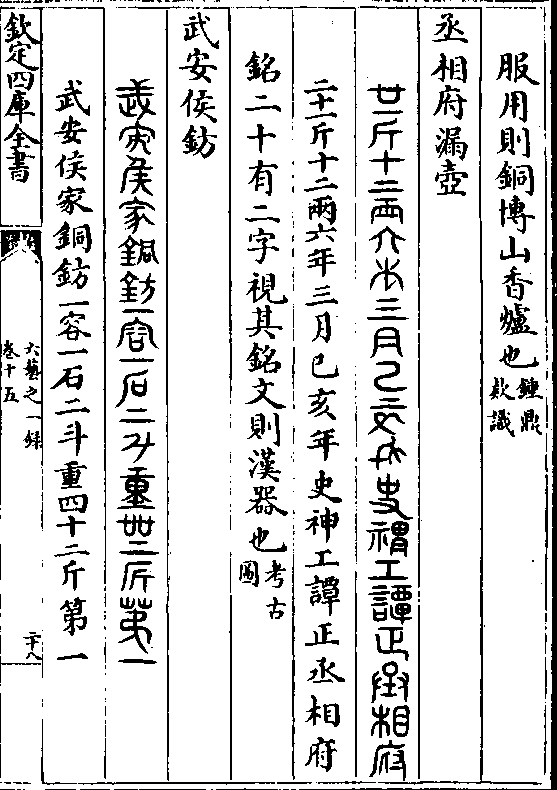 服用則銅博山香爐也鍾鼎
欵識
丞相府漏壺
廿一斤十二兩六年三月己亥年史神工譚正丞相府
二十一斤十二兩六年三月巳亥年史神工譚正丞相府
銘二十有二字視其銘文則漢器也考古
圖
武安侯鈁
武安侯家銅鈁一容一石二斗重卌二斤第一
武安侯家銅鈁一容一石二斗重四十二斤第一
欽定四庫全書
六藝之一錄
卷十五
二十八